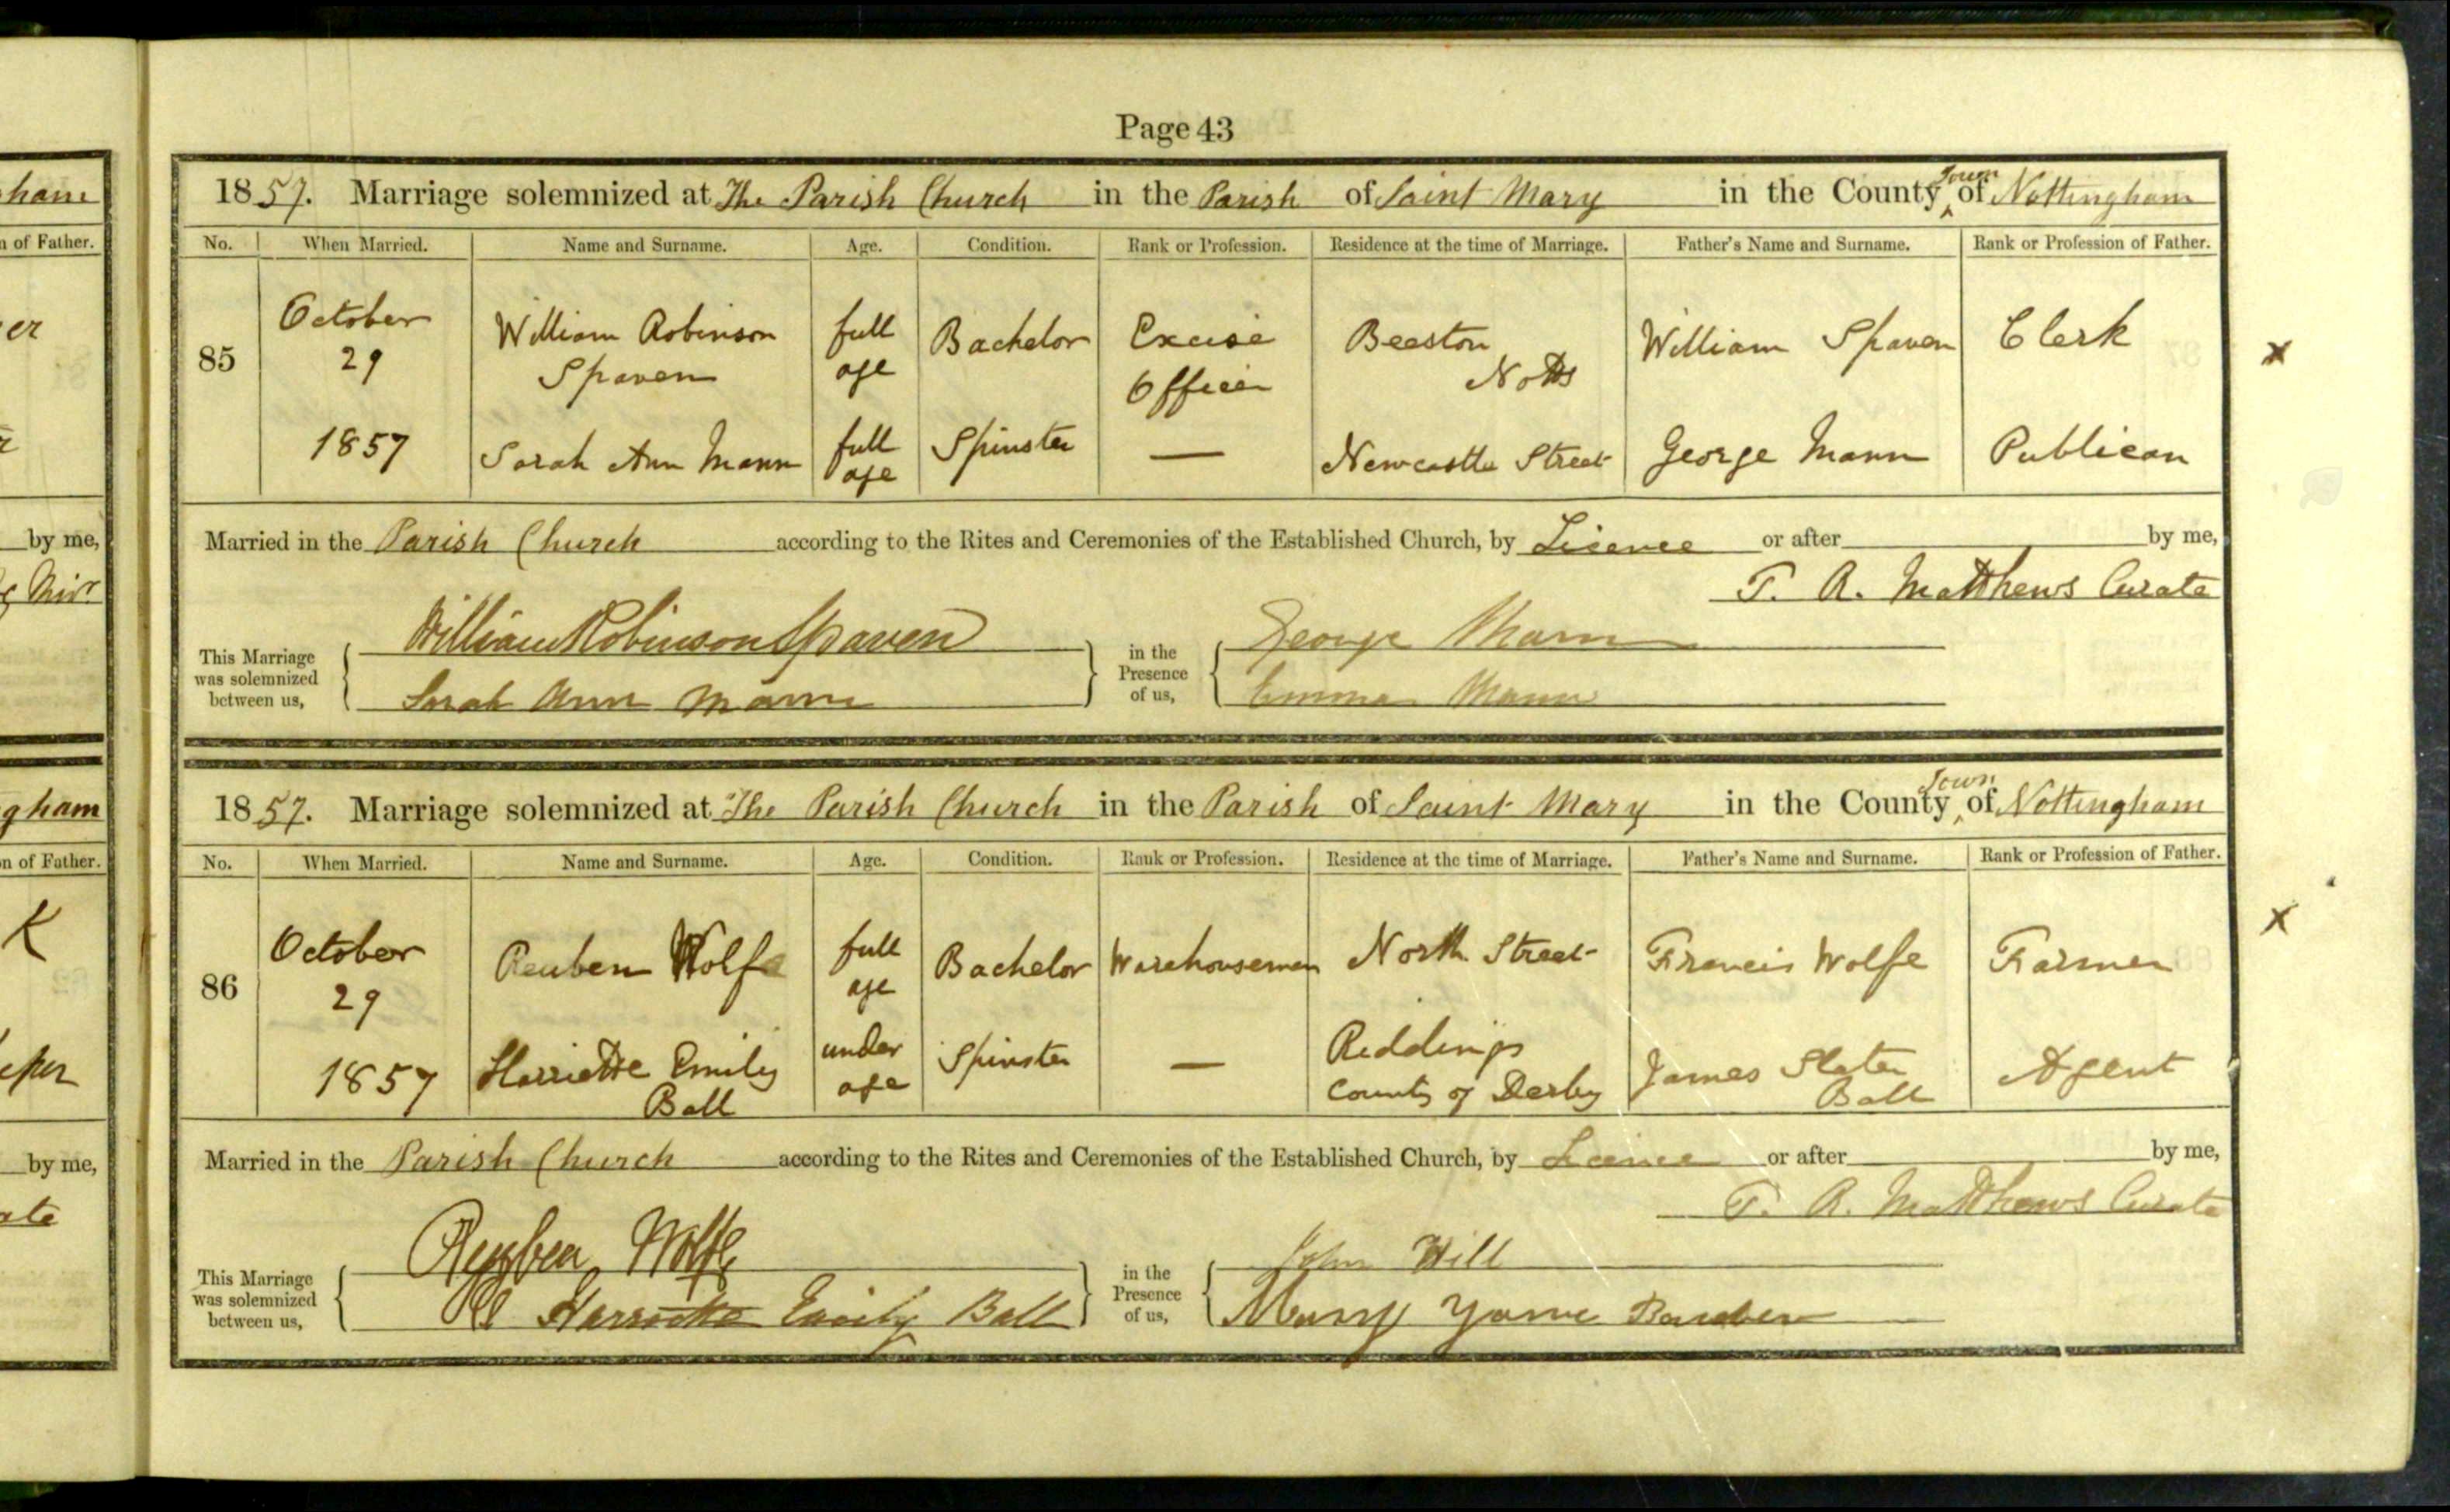 Page 43
1857. Marriage solemnized at The Parish Church in the Parish of Saint Mary in the County Town of Nottingham
No. When Married. Name and Surname. Age. Condition. Rank or Profession. Residence at the time of Marriage. Father's Name and Surname. Rank or Profession of Father.
85 October 29 William Robinson Spaven full age Bachelor Excise Officer Beeston Notts William Spaven Clerk
1857 Sarah Ann Mann full age Spinster — Newcastle Street George Mann Publican
Married in the Parish Church according to the Rites and Ceremonies of the Established Church, by Licence or after by me,
T. A. Matthews Curate
This Marriage was solemnized between us, William Robinson Spaven in the Presence of us, George Mann
Sarah Ann Mann Emma Mann
1857. Marriage solemnized at The Parish Church in the Parish of Saint Mary in the County Town of Nottingham
No. When Married. Name and Surname. Age. Condition. Rank or Profession. Residence at the time of Marriage. Father's Name and Surname. Rank or Profession of Father.
86 October 29 Reuben Wolfe full age Bachelor Warehouseman North Street Francis Wolfe Farmer
1857 Harriette Emily Ball under age Spinster — Riddings County of Derby James Slater Ball Agent
Married in the Parish Church according to the Rites and Ceremonies of the Established Church, by Licence or after by me,
T. A. Matthews Curate
This Marriage was solemnized between us, Reuben Wolfe in the Presence of us, John Hill
Harriette Emily Ball Mary